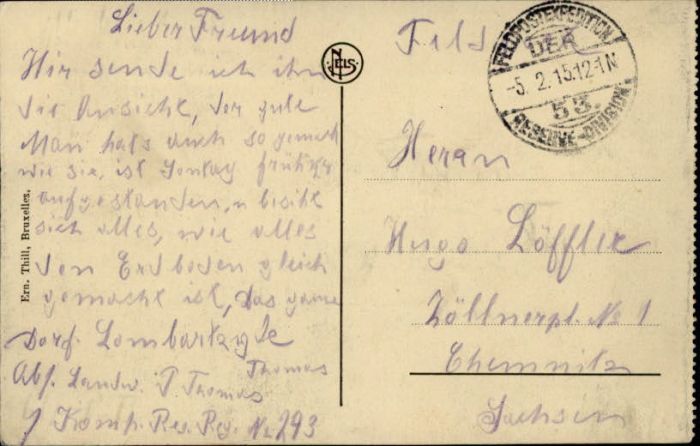 Lieber Freund
Hir sende ich ihn
die Ansicht, der gute
Man hats auch so gemacht
wie sie, ist Sontag früher
aufgestanden, u besiht
sich alles, wie alles
den Erdboden gleich
gemacht ist, das ganze
Dorf. Lombartzyde
Abs. Landw. P. Thomas
Thomas
7 Komp. Res. Reg. No 293
Ern. Thill, Bruxelles.
NELS
Feld
FELDPOSTEXPEDITION
DER
-5.2.15.12-1N
53.
RESERVE-DIVISION
Herrn
Hugo Löffler
Zöllnerpl. No 1
Chemnitz
Sachsen